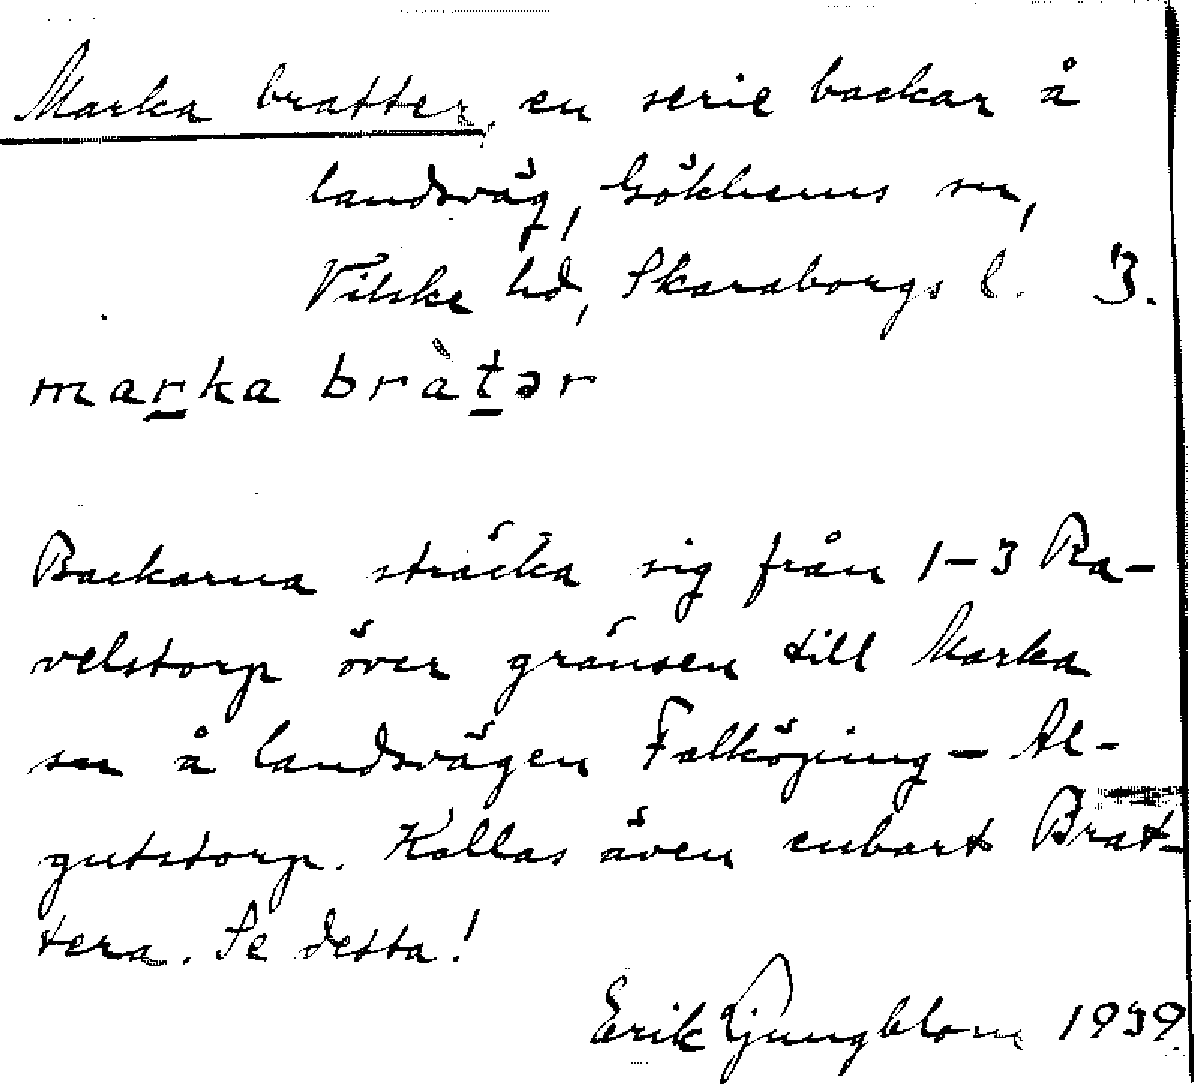 Marka bratter, en serie backar å
landsväg, Gökhems sn,
Vilske hd, Skaraborgs l. 3.
mar̲ka bràt̲ər
Backarna sträcka sig från 1-3 Ra-
velstorp över gränsen till Marka
sn å landsvägen Falköping - Al-
gutstorp. Kallas även enbart Brat-
tera. Se detta!
Erik Ljungblom 1939.